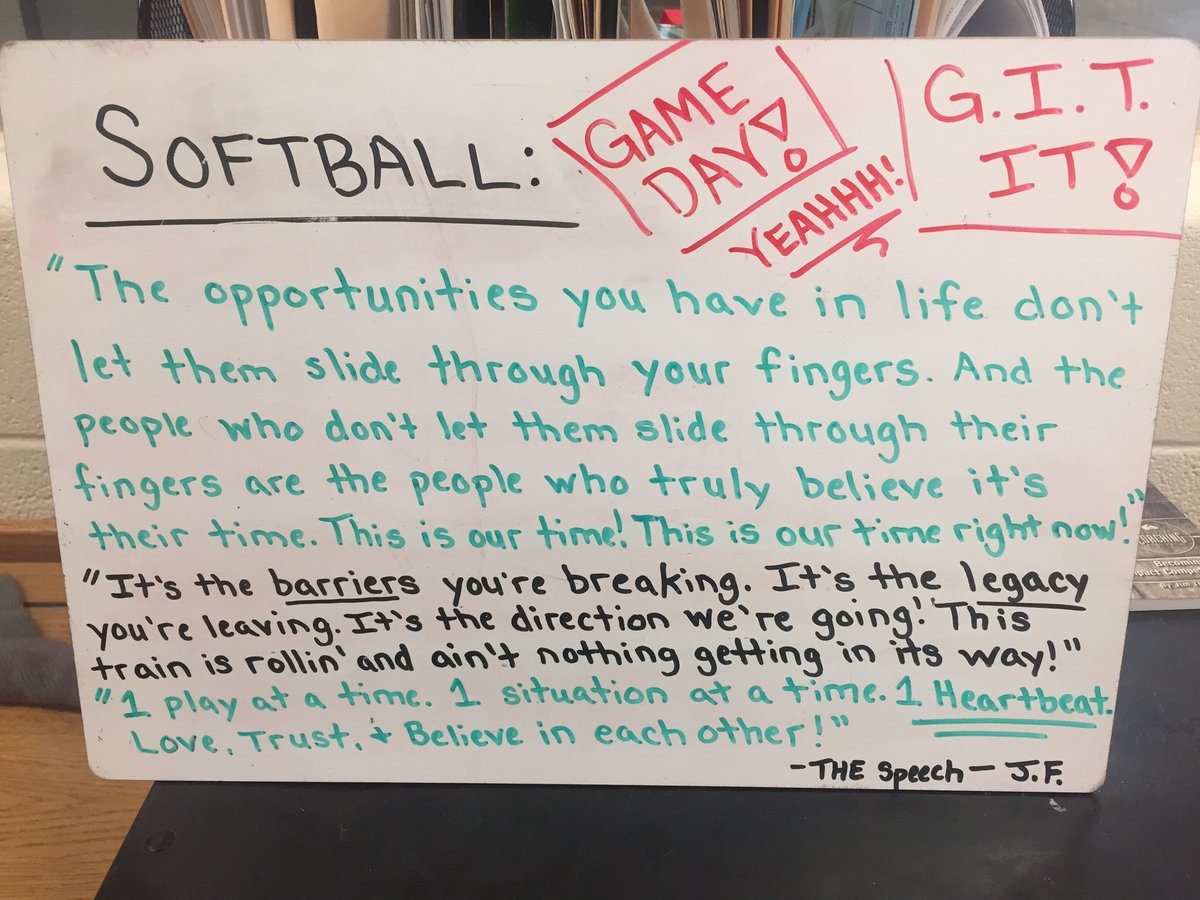 SOFTBALL:
GAME
DAY!
YEAHHH!
G.I.T.
IT!
"The opportunities you have in life don't
let them slide through your fingers. And the
people who don't let them slide through their
fingers are the people who truly believe it's
their time. This is our time! This is our time right now!"
"It's the barriers you're breaking. It's the legacy
you're leaving. It's the direction we're going! This
train is rollin' and ain't nothing getting in its way!"
"1 play at a time. 1 situation at a time. 1 Heartbeat.
Love, Trust, + Believe in each other!"
-THE Speech- J.F.
COACHING